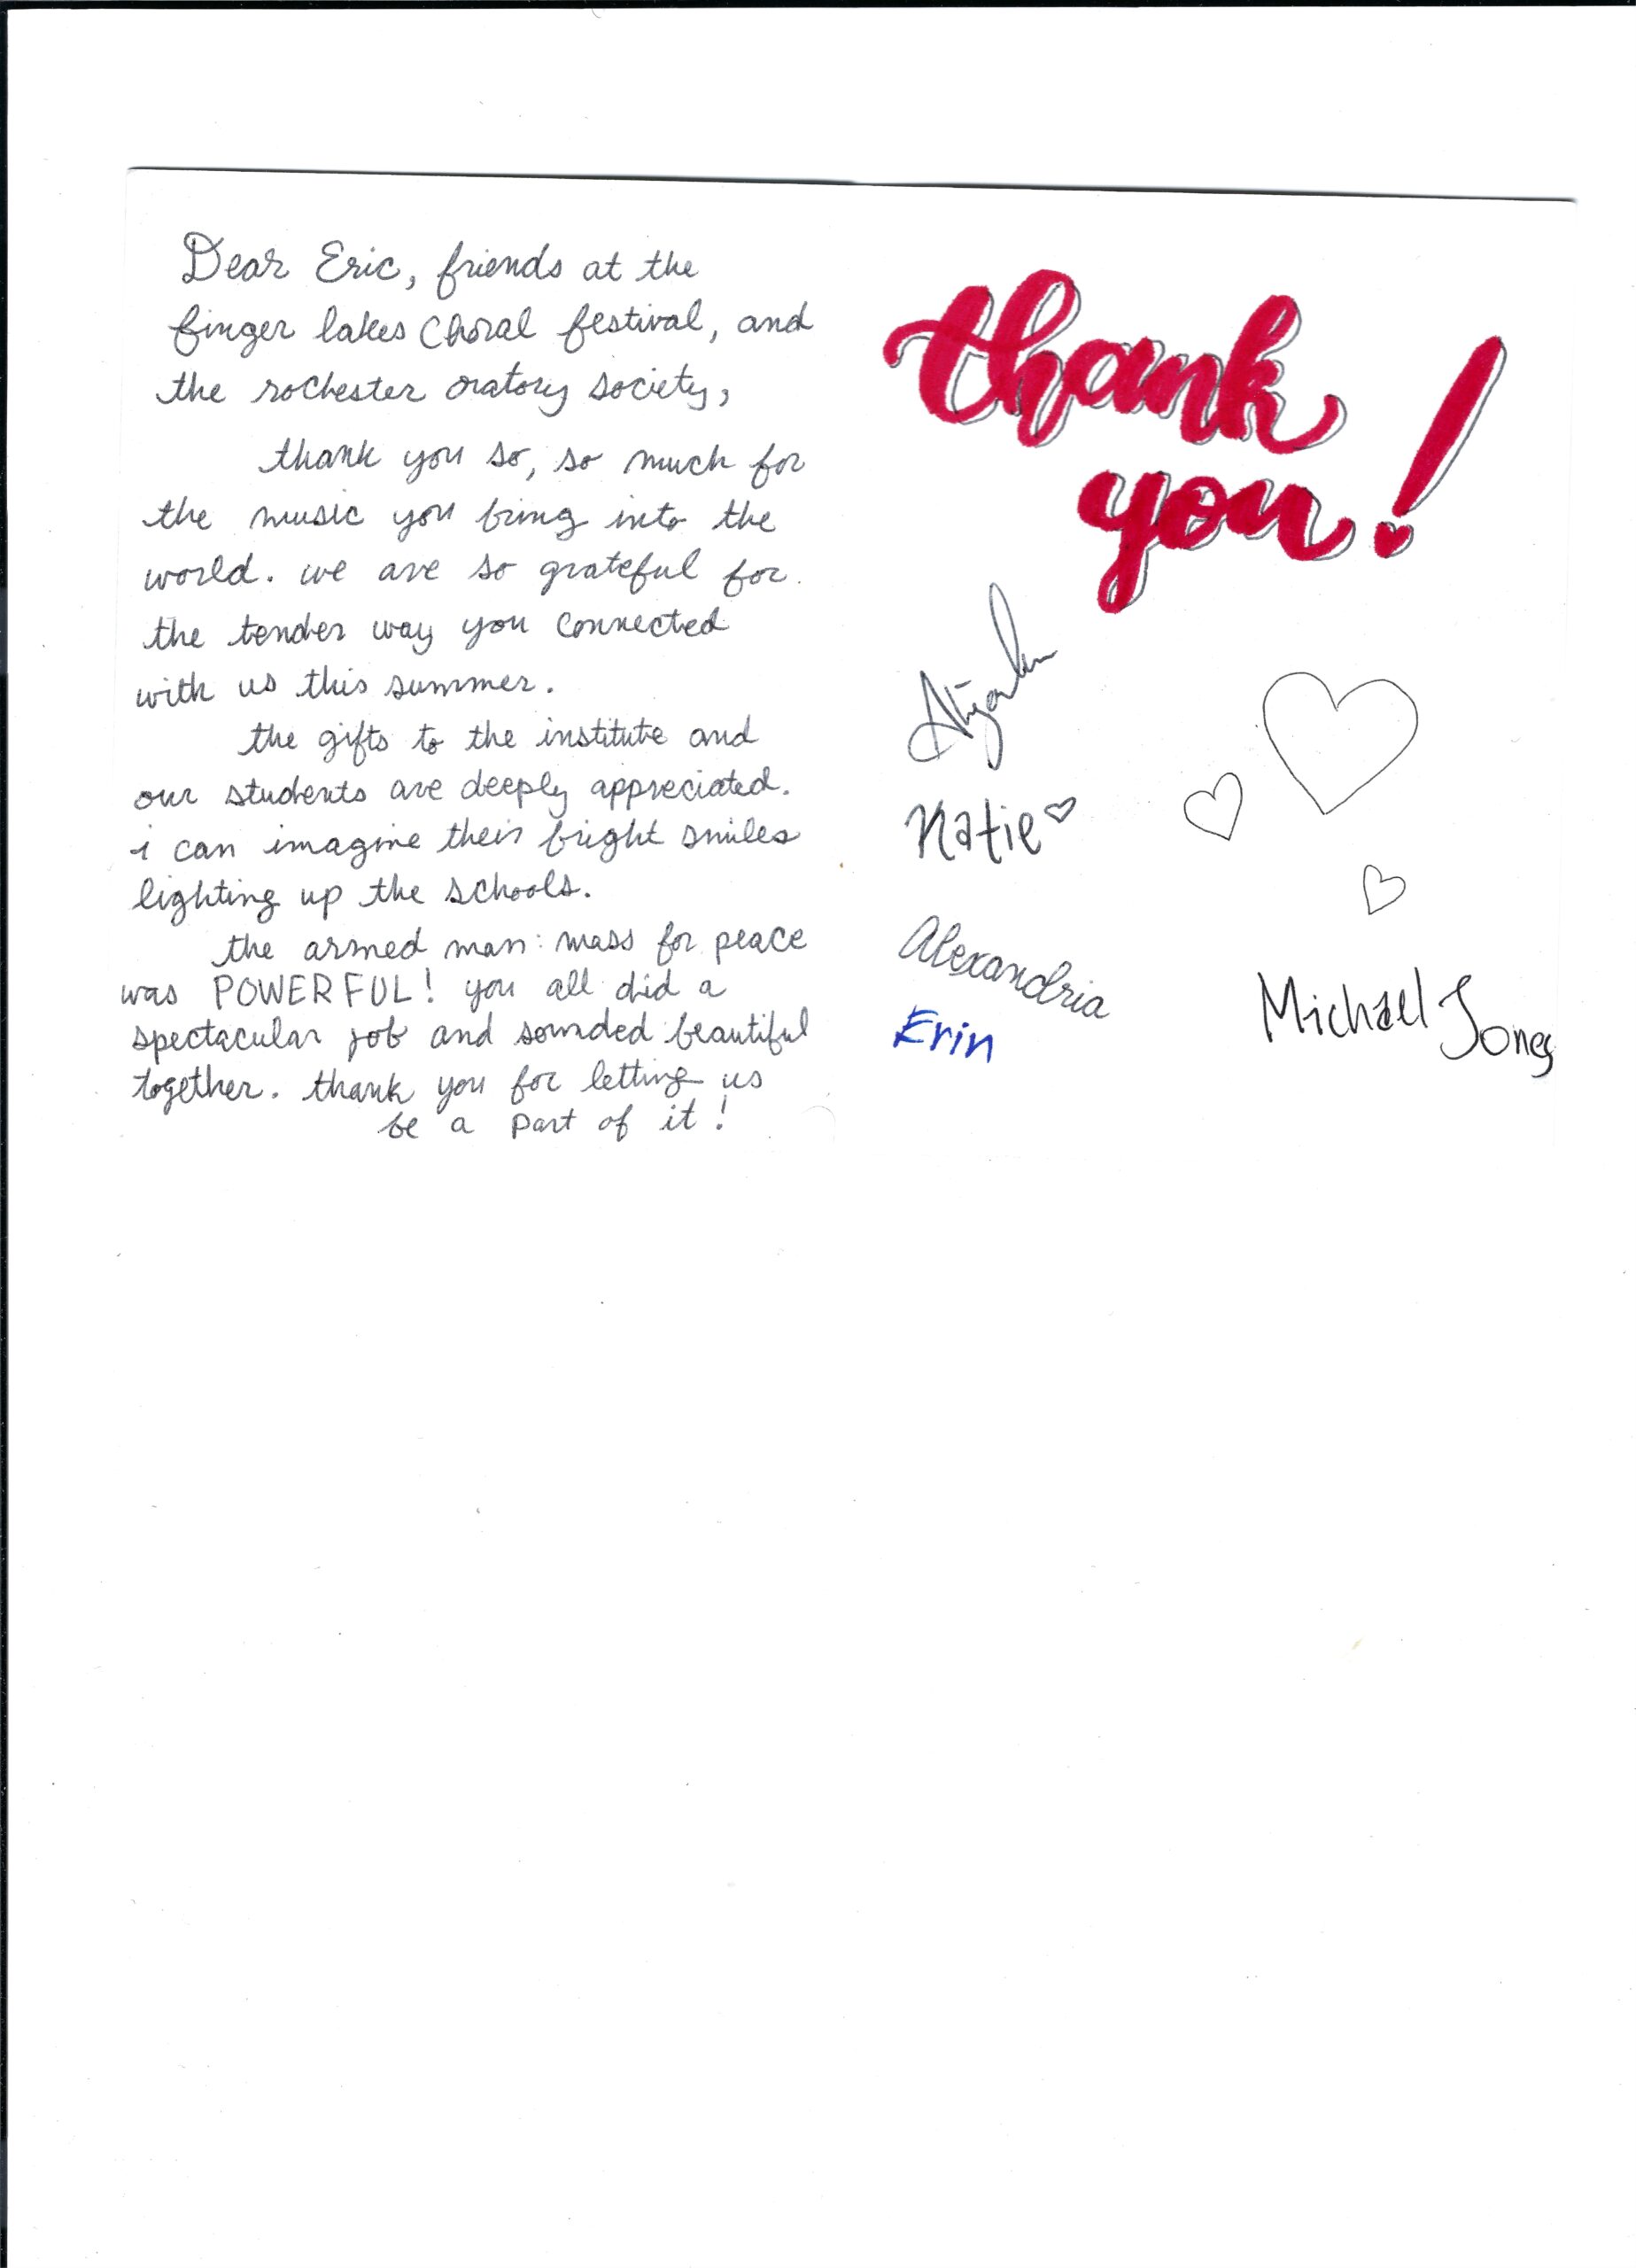 Dear Eric, friends at the
finger lakes choral festival, and
the rochester oratory society,
thank you so, so much for
the music you bring into the
world. we are so grateful for
the tender way you connected
with us this summer.
the gifts to the institute and
our students are deeply appreciated.
i can imagine their bright smiles
lighting up the schools.
the armed man: mass for peace
was POWERFUL! you all did a
spectacular job and sounded beautiful
together. thank you for letting us
be a part of it!
thank
you!
Katie
Alexandria
Erin
Michael Jones